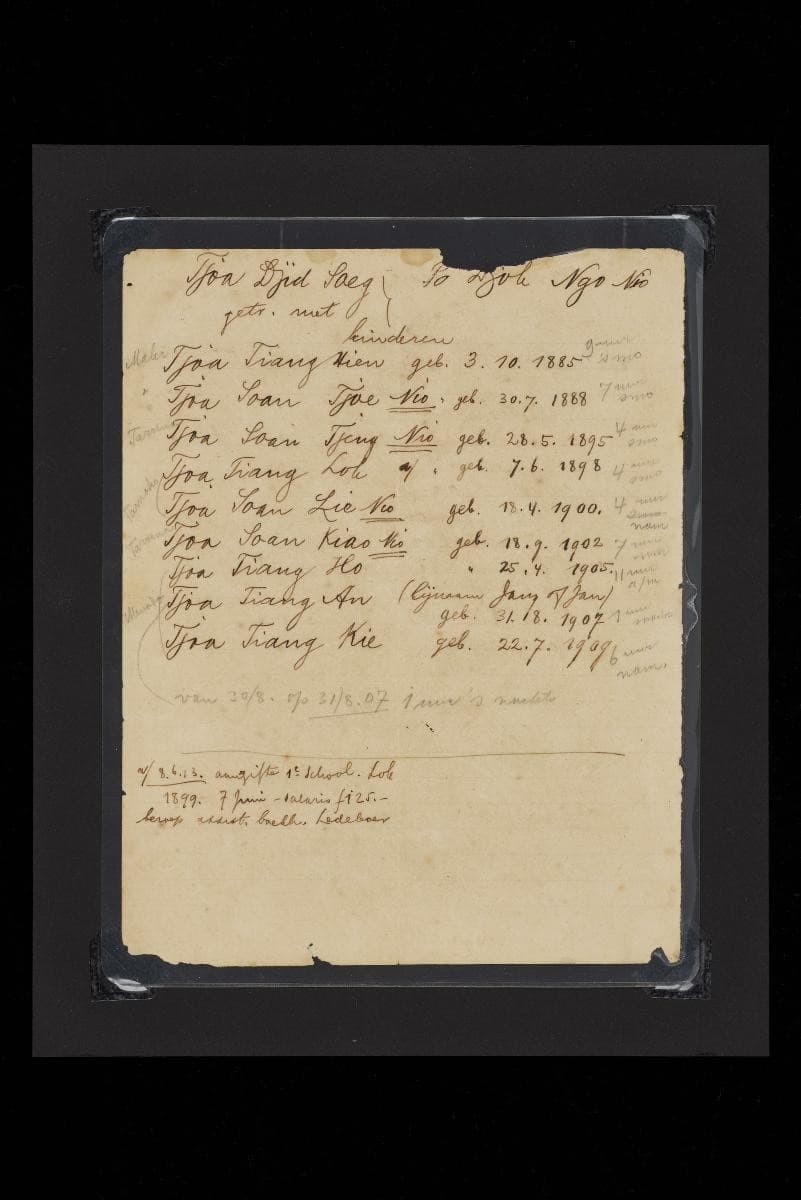 Tjoa Djid Saeg { Djok Ngo Nio
getr. met
kinderen
Tjoa Tiang Hien geb. 3. 10. 1885
Tjoa Soan Tjoe Nio. geb. 30.7. 1888
Tjoa Soan Tjeng Nio geb. 28.5. 1895
Tjoa Tiang Lok a/ " geb. 7.6. 1898
Tjoa Soan Lie Nio geb. 18.4. 1900.
Tjoa Soan Kiao Nio geb. 18.9. 1902
Tjoa Tiang Ho " 25.4. 1905.
Tjoa Tiang An (bijnaam Jang of Jan)
geb. 31.8. 1907
Tjoa Tiang Kie geb. 22.7. 1909
9 uur
7 uur
4 uur
4 uur
4 uur
nam
7 uur
11 uur
a/m
1 uur
6 uur
nam.
van 30/8. op 31/8.07 1 uur 's nachts
a/ 8.6.13. aangifte 1e School. Lok
1899. 7 Juni - salaris f125.-
beroep assist. boekh. Ledeboer